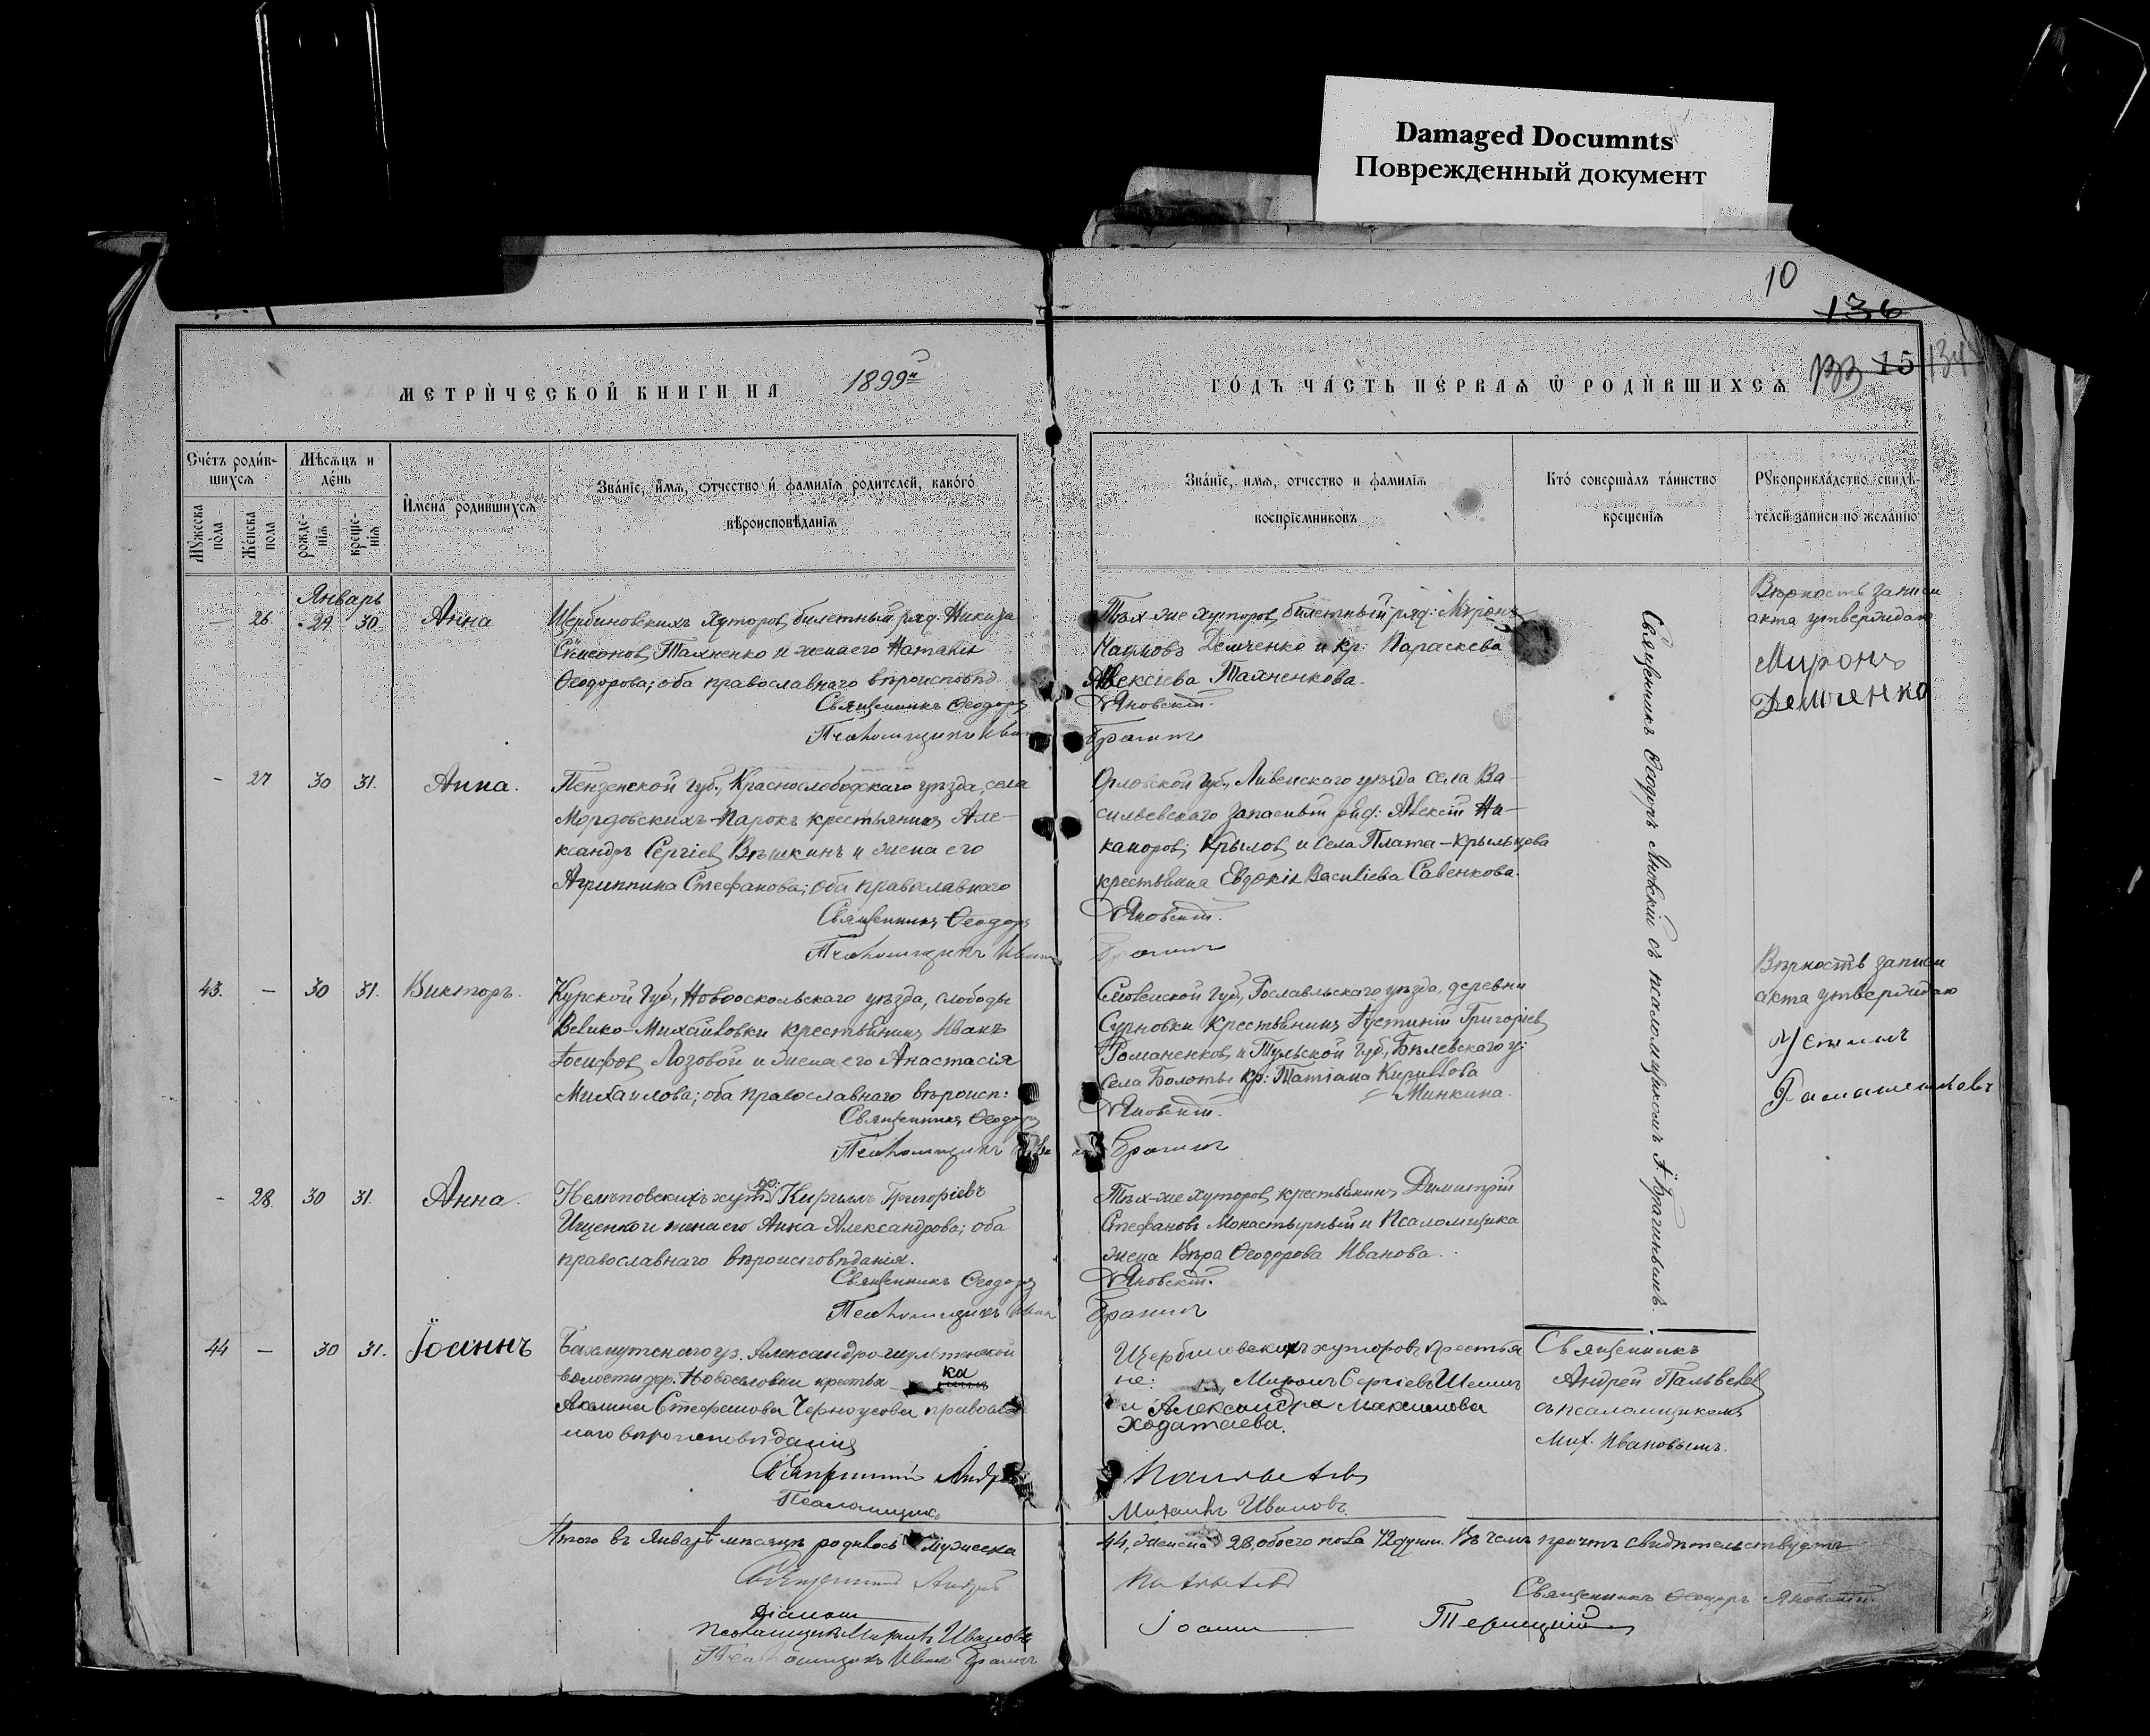 Damaged Documnts
Поврежденный документ
10
136
133 15 134
МЕТРИЧЕСКОЙ КНИГИ НА 1899й ГОДЪ ЧАСТЬ ПЕРВАЯ Ѿ РОДИВШИХСЯ
Счетъ родив-
шихся
Мужеска пола
Женска пола
Мѣсяцъ и
день
рожде-
нія
креще-
нія
Имена родившихся
Званіе, имя, отчество и фамилія родителей, какого
вѣроисповѣданія
Званіе, имя, отчество и фамилія
воспріемниковъ
Кто совершалъ таинство
крещенія
Рукоприкладство свидѣ-
телей записи по желанію
Январь
— 26. 29 30 Анна
Щербиновскихъ хуторов, билетный ряд. Никита
Тахненко и жена его Наталія
Ѳеодорова; оба православнаго вѣроисповѣд.
Священникъ Ѳеодоръ Яновскій.
Псаломщикъ Иванъ
Тѣх-же хуторов, билетный ряд: Миронъ
Наумовъ Демченко и кр: Параскева
Алексіева Тахненкова.
Вѣрность записи
акта утверждаю
Миронъ
Демченко
- 27 30 31. Анна.
Пензенской губ., Краснослободскаго уѣзда, села
Мордовскихъ-Парокъ крестьянинъ Але-
ксандръ Сергіев, Вѣшкинъ и жена его
Агриппина Стефанова; оба православнаго
Священникъ Ѳеодоръ Яновскій.
Псаломщикъ Иванъ
Орловской губ., Ливенскаго уѣзда села Ва-
сильевскаго запасный ряд: Алексій Ни-
каноров, Крылов, и села Плата-Крыльцова
крестьянка Евдокія Василіева Савенкова.
43. — 30 31. Викторъ.
Курской губ., Новооскольскаго уѣзда, слободы
Велико-Михайловки крестьянинъ Иванъ
Іосифов, Лозовой и жена его Анастасія
Михаилова; оба православнаго вѣроисп:
Священникъ Ѳеодоръ Яновскій.
Псаломщикъ
Смоленской губ., Рославльскаго уѣзда, деревни
Сурновки крестьянинъ Іустиній Григоріев,
Романенков, и Тульской губ., Бѣлевскаго у:
села Болоты кр: Татіана Кириллова
Минкина.
Вѣрность записи
акта утверждаю
- 28. 30 31. Анна.
Нелѣповскихъ хут. кр: Кириллъ Григоріевъ
Ищенко и жена его Анна Александрова; оба
православнаго вѣроисповѣданія.
Священникъ Ѳеодоръ Яновскій.
Псаломщикъ Иванъ
Тѣх-же хуторов, крестьянинъ Димитрій
Стефановъ Монастырный и Псаломщика
жена Вѣра Ѳеодорова Иванова.
Священникъ Ѳеодоръ Яновскій съ псаломщикомъ І. Брагинымъ.
44 — 30 31. Іоаннъ
Бахмутскаго уз. Александро-шультенской
волости дер. Новоселовки крестья ка
Акилина Стефанова Черноусова православ
наго вѣроисповѣданія
Псаломщикъ Михаилъ Ивановъ.
Щербиновскихъ хуторовъ крестья
не: Миронъ Сергіевъ Шешинъ
и Александра Максимова
Ходатаева.
Священникъ
Андрей
съ псаломщикомъ
Мих. Ивановымъ.
Итого въ Январѣ мѣсяцѣ родилось мужеска 44, женска 28, обоего пола 72 души. Въ чемъ причтъ свидѣтельствуетъ
Священникъ Ѳеодоръ Яновскій.
Діаконъ Іоаннъ
Псаломщикъ Михаилъ Ивановъ
Псаломщикъ Иванъ